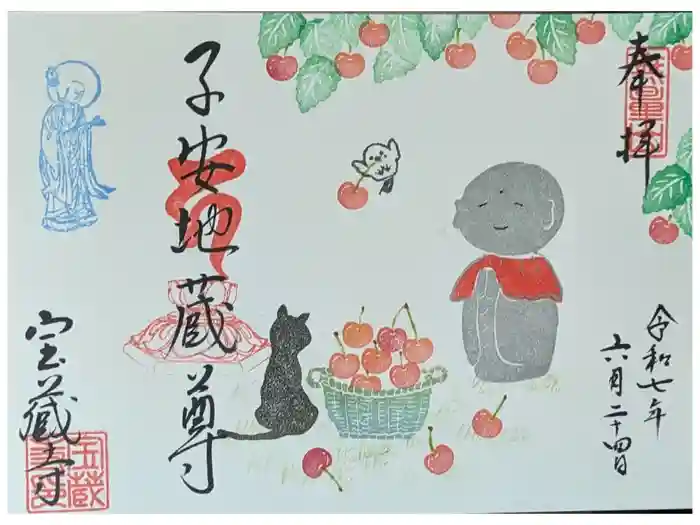 奉拝
令和七年
六月二十四日
子安地蔵尊
宝蔵寺